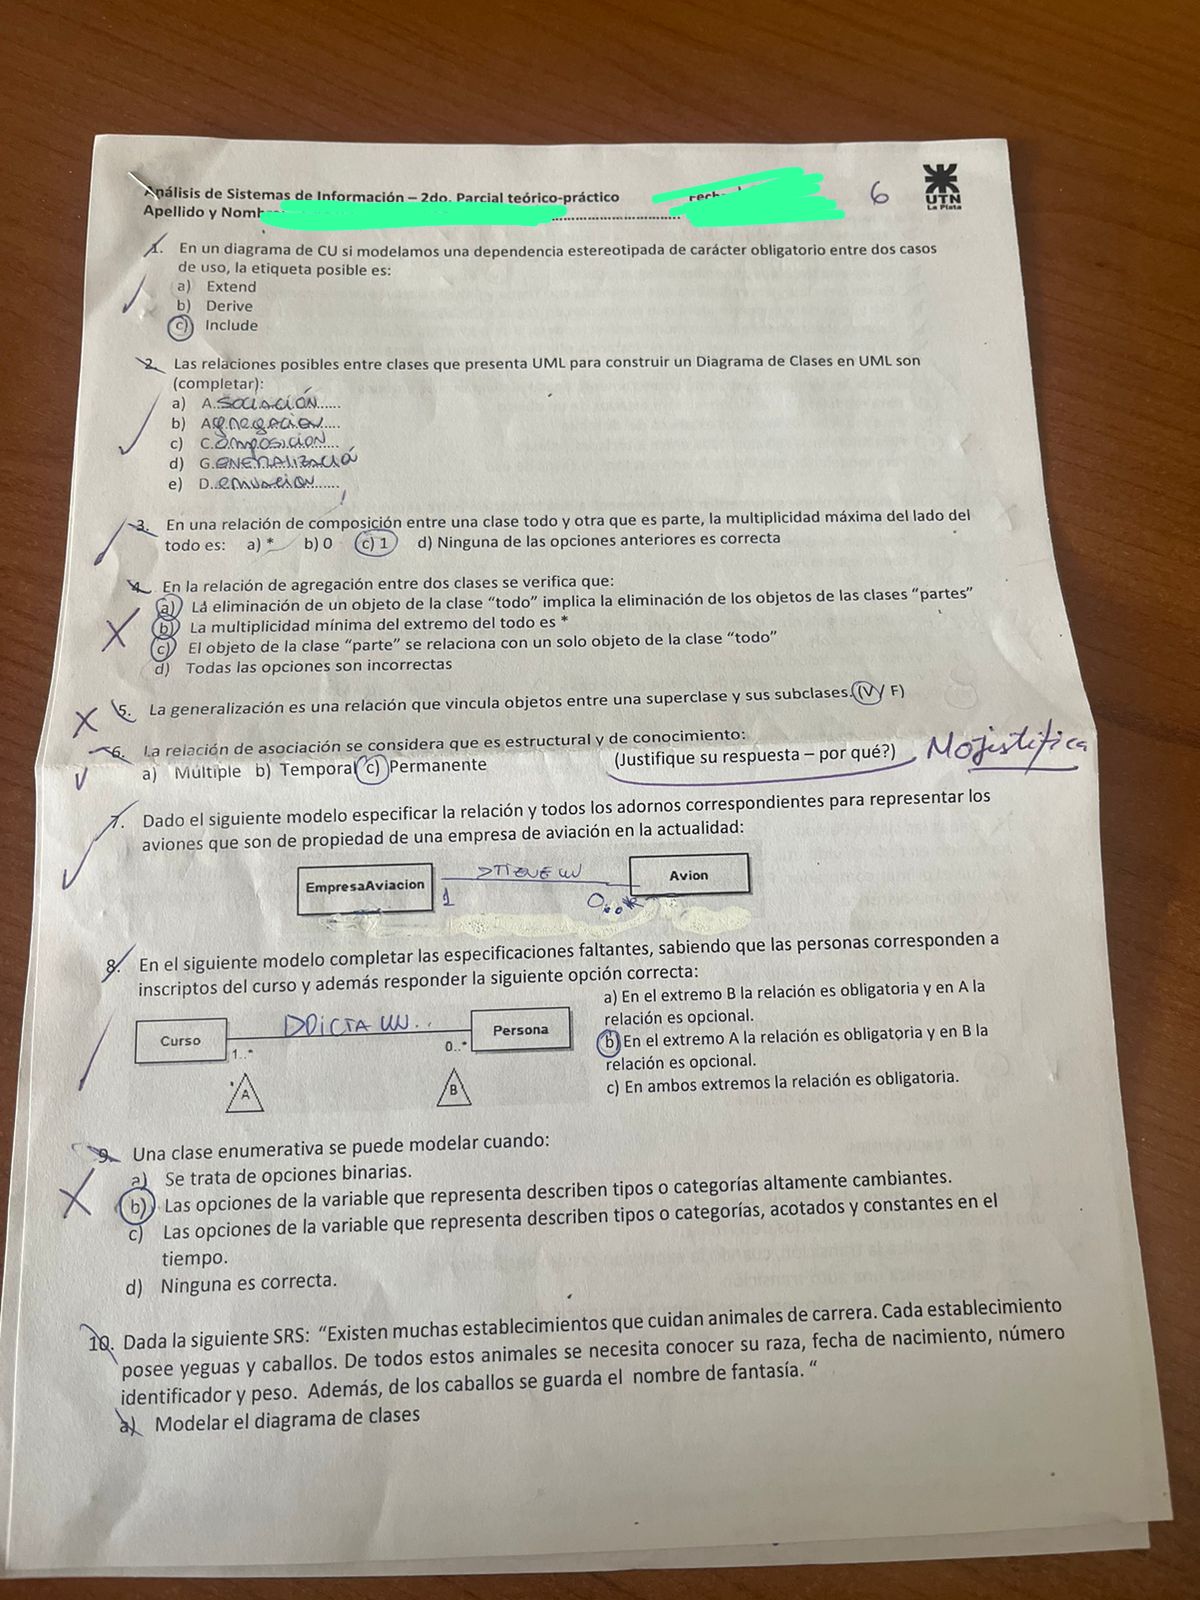 Análisis de Sistemas de Información – 2do. Parcial teórico-práctico
6
UTN
La Plata
Apellido y Nomb
1. En un diagrama de CU si modelamos una dependencia estereotipada de carácter obligatorio entre dos casos
de uso, la etiqueta posible es:
a) Extend
b) Derive
c) Include
2. Las relaciones posibles entre clases que presenta UML para construir un Diagrama de Clases en UML son
(completar):
a) A.sociación......
b) Agregacion.....
c) C.omposicion...
d) G.eneralizació
e) D.erivacion......
3. En una relación de composición entre una clase todo y otra que es parte, la multiplicidad máxima del lado del
todo es: a) * b) 0 c) 1 d) Ninguna de las opciones anteriores es correcta
4. En la relación de agregación entre dos clases se verifica que:
a) La eliminación de un objeto de la clase “todo” implica la eliminación de los objetos de las clases “partes”
b) La multiplicidad mínima del extremo del todo es *
c) El objeto de la clase “parte” se relaciona con un solo objeto de la clase “todo”
d) Todas las opciones son incorrectas
5. La generalización es una relación que vincula objetos entre una superclase y sus subclases. (V / F)
6. La relación de asociación se considera que es estructural y de conocimiento:
a) Múltiple b) Temporal c) Permanente (Justifique su respuesta – por qué?) No justifica
7. Dado el siguiente modelo especificar la relación y todos los adornos correspondientes para representar los
aviones que son de propiedad de una empresa de aviación en la actualidad:
EmpresaAviacion >TIENE UN Avion
1 0..*
8. En el siguiente modelo completar las especificaciones faltantes, sabiendo que las personas corresponden a
inscriptos del curso y además responder la siguiente opción correcta:
a) En el extremo B la relación es obligatoria y en A la
relación es opcional.
b) En el extremo A la relación es obligatoria y en B la
relación es opcional.
c) En ambos extremos la relación es obligatoria.
Curso DICTA UN.. Persona
1..* 0..*
A B
9. Una clase enumerativa se puede modelar cuando:
a) Se trata de opciones binarias.
b) Las opciones de la variable que representa describen tipos o categorías altamente cambiantes.
c) Las opciones de la variable que representa describen tipos o categorías, acotados y constantes en el
tiempo.
d) Ninguna es correcta.
10. Dada la siguiente SRS: “Existen muchas establecimientos que cuidan animales de carrera. Cada establecimiento
posee yeguas y caballos. De todos estos animales se necesita conocer su raza, fecha de nacimiento, número
identificador y peso. Además, de los caballos se guarda el nombre de fantasía. “
a) Modelar el diagrama de clases